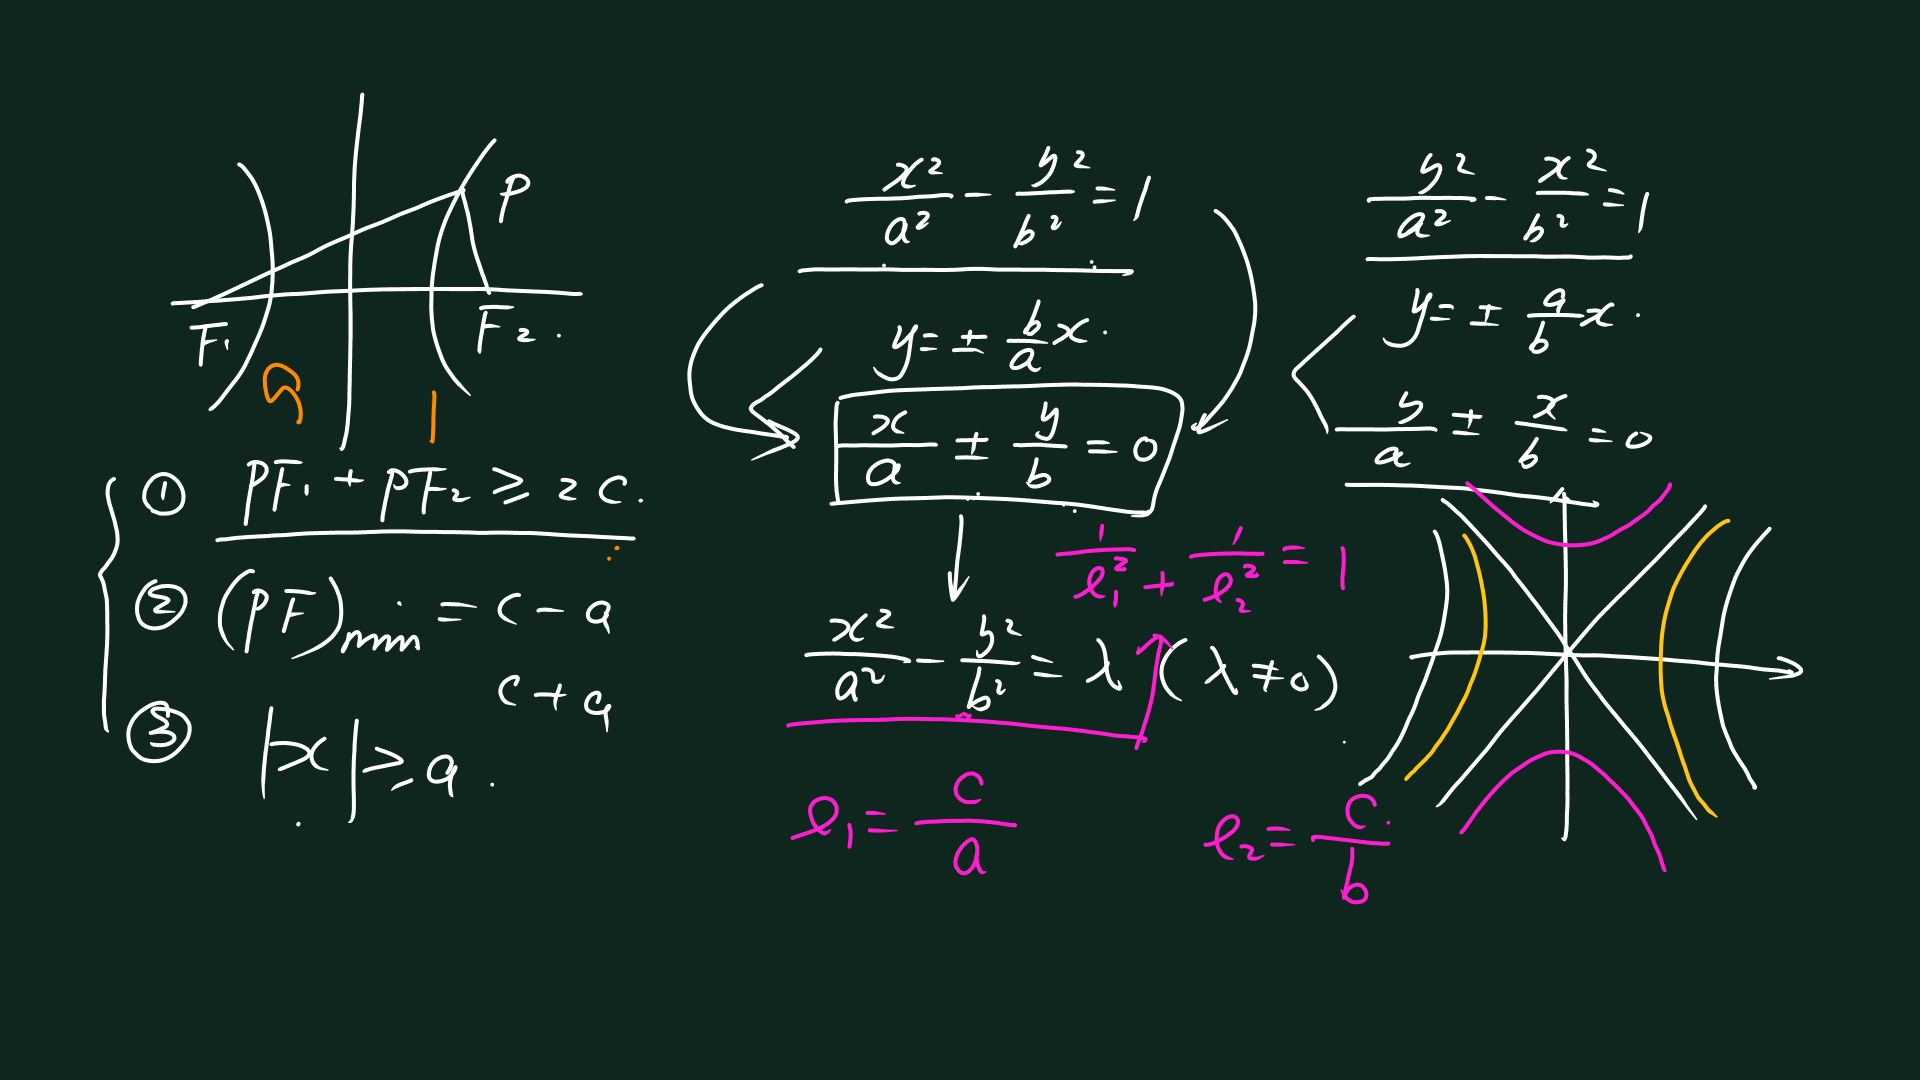 P
F₁ F₂.
9 1
① PF₁ + PF₂ ⩾ 2c.
② (PF)min = c - a
c + a
③ |x| ⩾ a.
x²/a² - y²/b² = 1
y = ± b/a x.
x/a ± y/b = 0
1/e₁² + 1/e₂² = 1
x²/a² - y²/b² = λ (λ ≠ 0)
e₁ = c/a
e₂ = c/b
y²/a² - x²/b² = 1
y = ± a/b x.
y/a ± x/b = 0